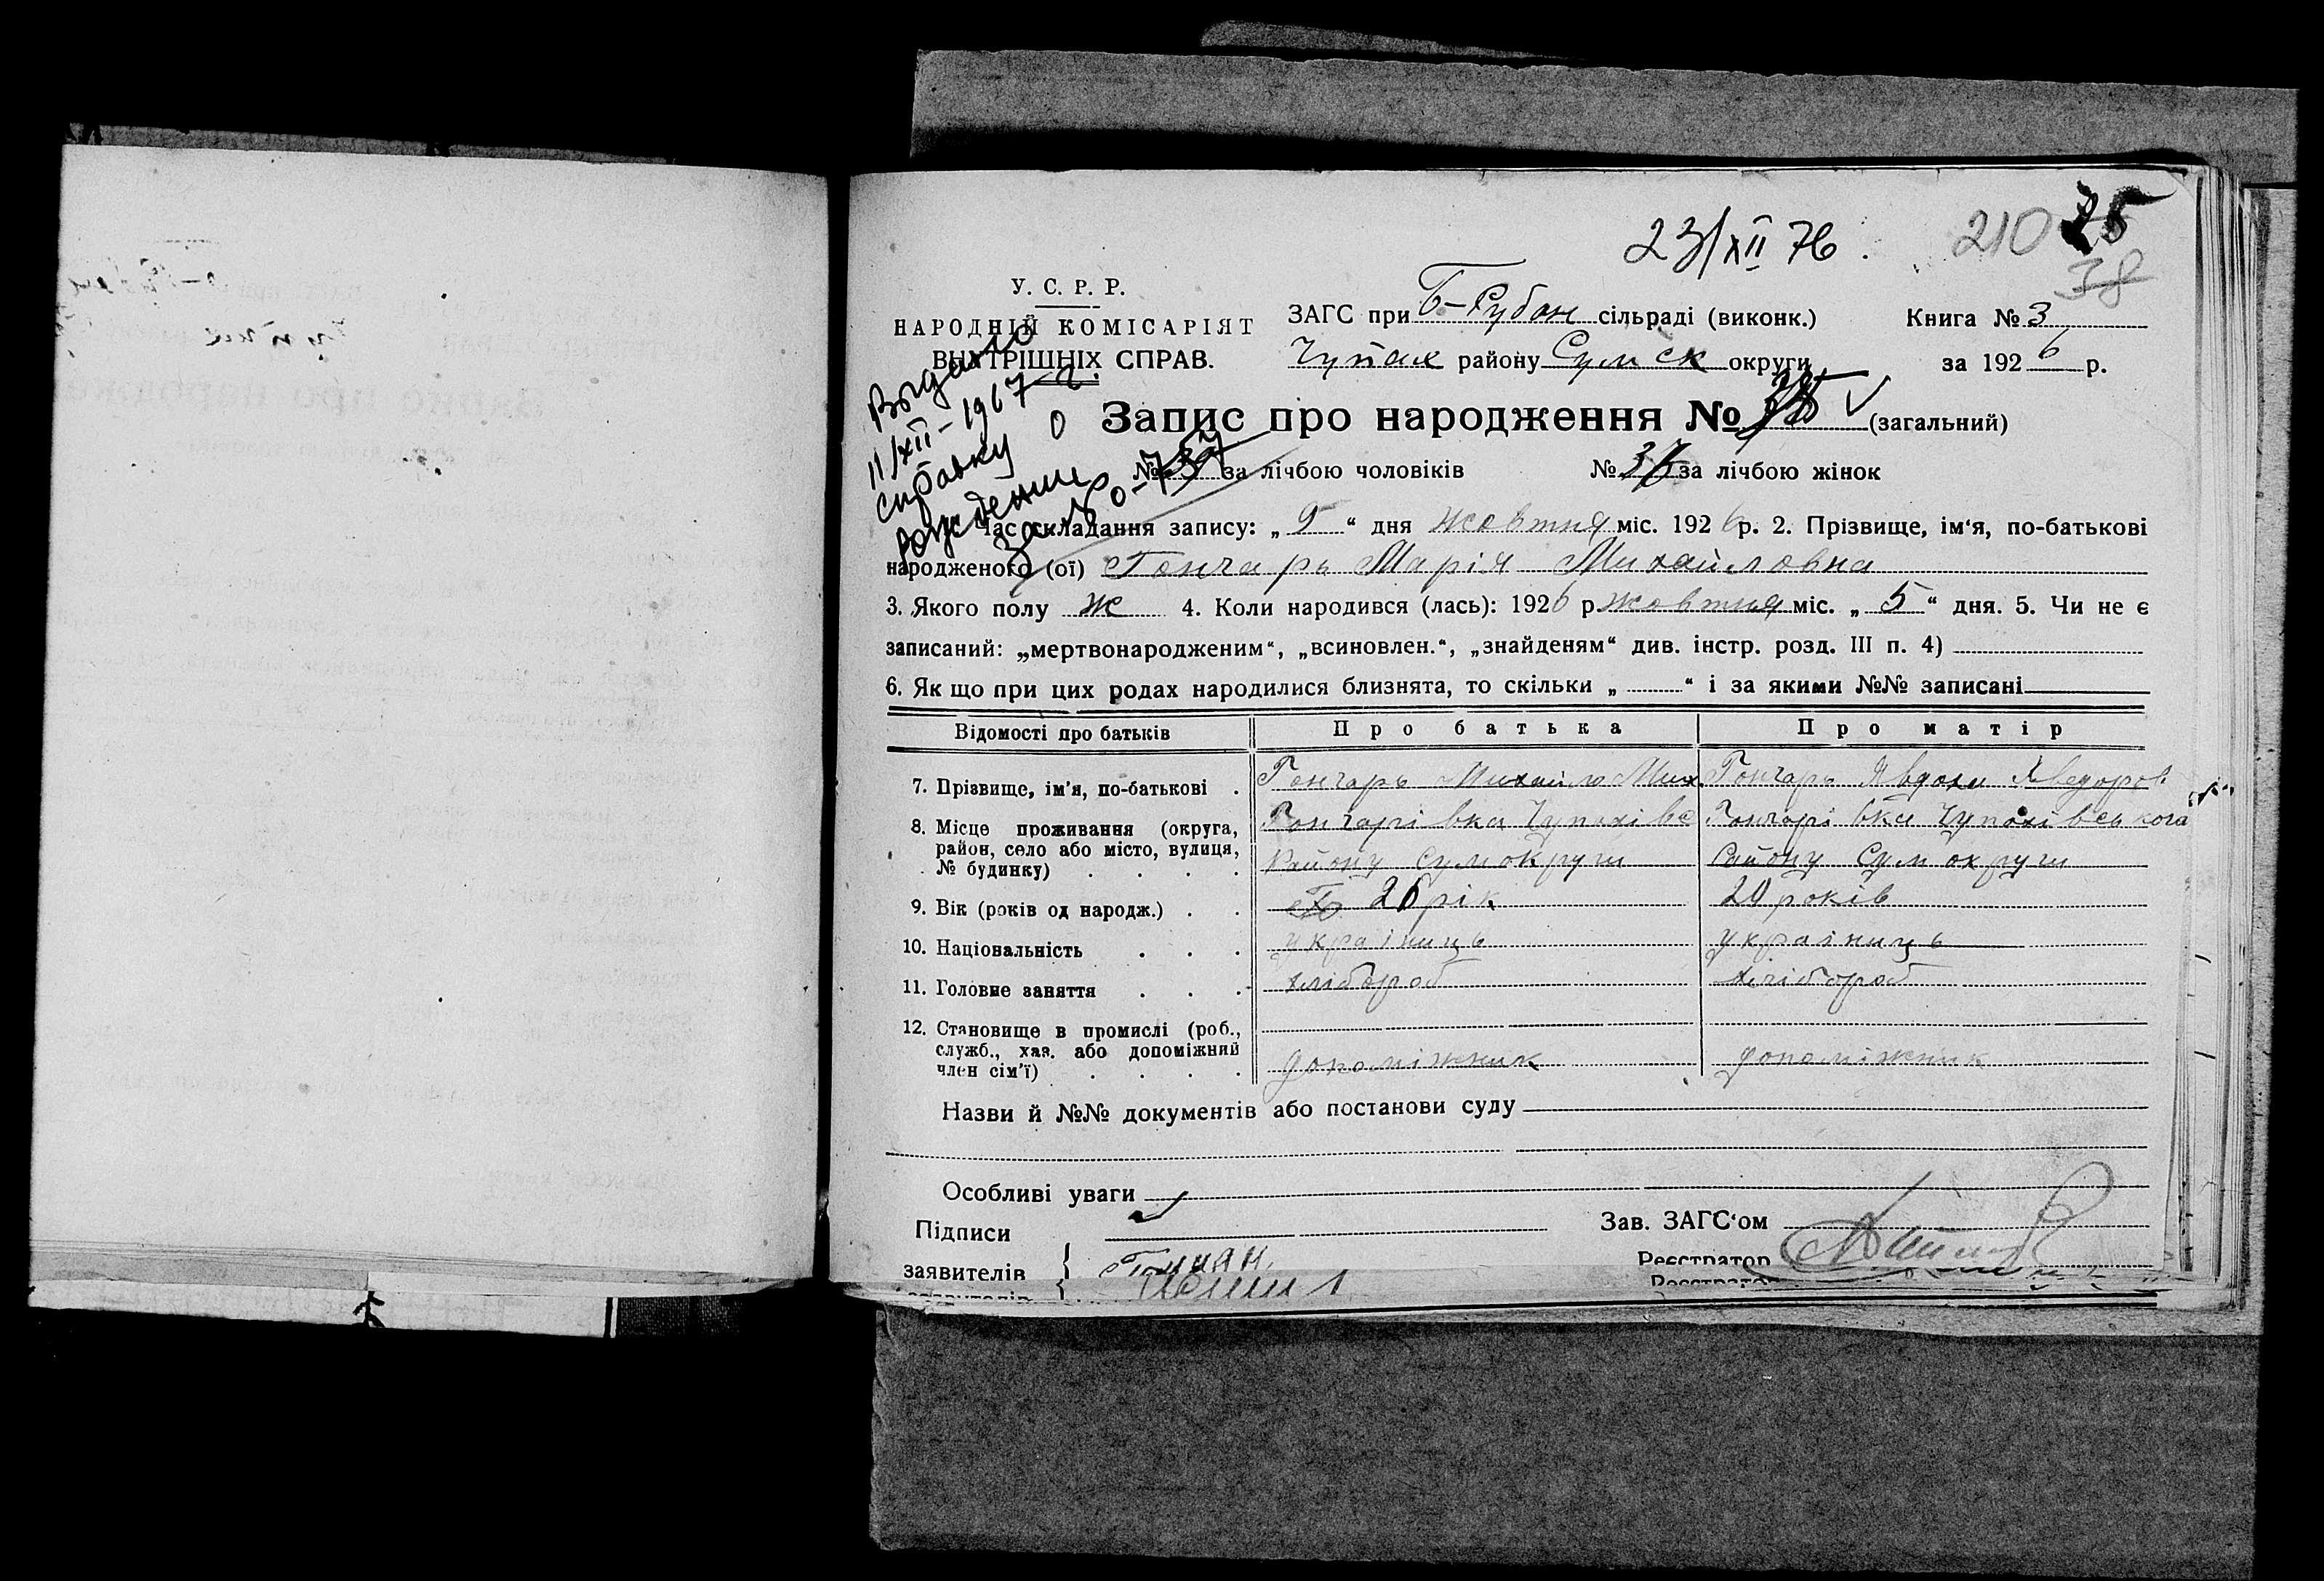 23/XII 76.
210 75
38
У. С. Р. Р.
НАРОДНІЙ КОМІСАРІЯТ
ВНУТРІШНІХ СПРАВ.
ЗАГС при Б-Рубан сільраді (виконк.) Книга № 3
Чупах району Сумск округи за 1926 р.
Выдано
11/XII-1967 г.
справку о
рождении
Запис про народження № (загальний)
№ за лічбою чоловіків № за лічбою жінок
Час складання запису: „ 9 “ дня жовтня міс. 1926 р. 2. Прізвище, ім‘я, по-батькові
народженого (ої) Гончарь Марія Михайловна
3. Якого полу ж 4. Коли народився (лась): 1926 р. жовтня міс. „ 5 “ дня. 5. Чи не є
записаний: „мертвонародженим“, „всиновлен.“, „знайденям“ див. інстр. розд. III п. 4)
6. Як що при цих родах народилися близнята, то скільки „ “ і за якими №№ записані
Відомості про батьків Про батька Про матір
7. Прізвище, ім'я, по-батькові . Гончарь Михайло Мих. Гончарь Явдоха Хведоров
8. Місце проживання (округа, район, село або місто, вулиця, № будинку) . . . . Гончарівка Чупахівс Району Сумокруги Гончарівка Чупахівськога Району Сумокруги
9. Вік (років од народж.) . . 26 рік 20 років
10. Національність . . . українць українць
11. Головне заняття . . . хлібороб хлібороб
12. Становище в промислі (роб., служб., хаз. або допоміжний член сім'ї) . . . . допоміжник допоміжник
Назви й №№ документів або постанови суду
Особливі уваги
Підписи
заявителів
Зав. ЗАГС‘ом
Реєстратор